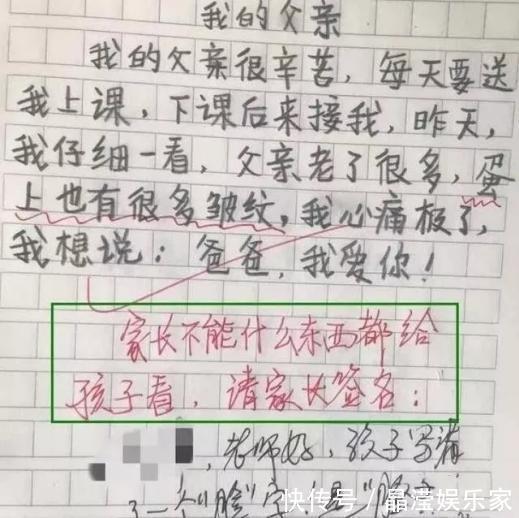 我的父亲
我的父亲很辛苦，每天要送
我上课，下课后来接我，昨天，
我仔细一看，父亲老了很多，蛋
上也有很多皱纹，我心痛极了，
我想说：爸爸，我爱你！
家长不能什么东西都给
孩子看，请家长签名：
，老师好，孩子写漏
了一个"脸"字，是"脸蛋"
快传号／晶滢娱乐家